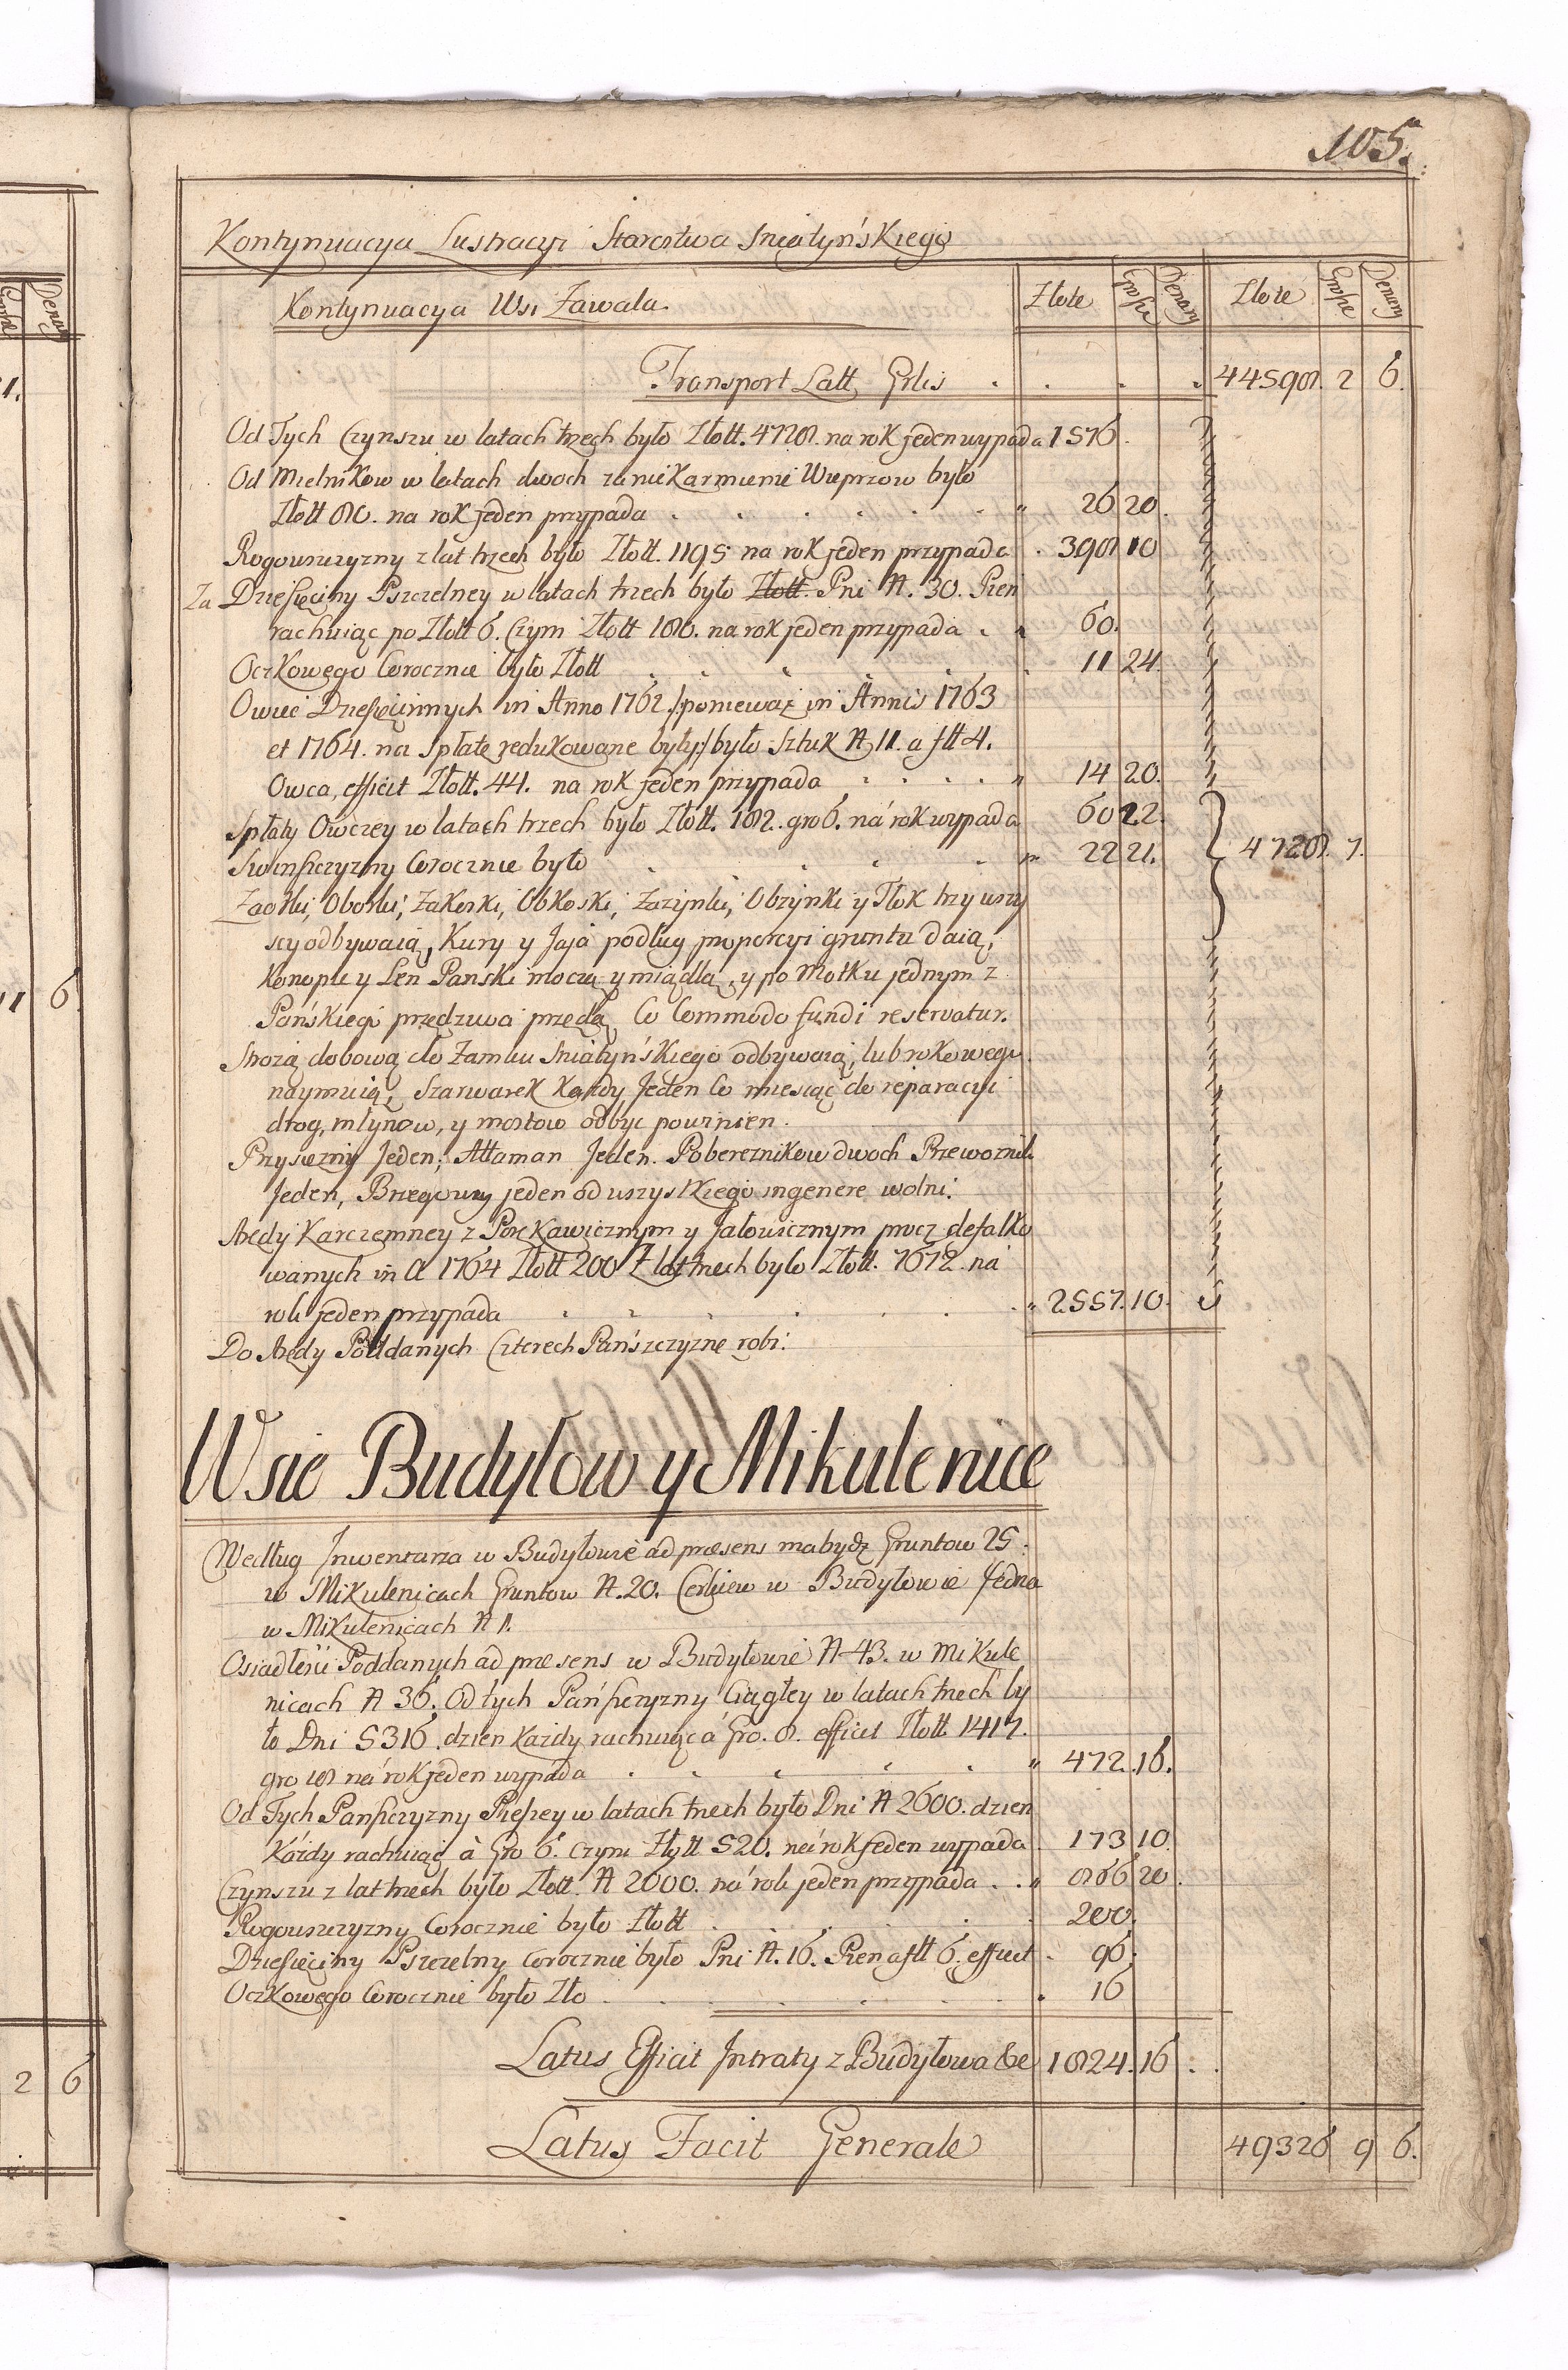 105.
Kontynuacya Lustracyi Starostwa Sniatyńskiego
Kontynuacya Wsi Zawala. Złote Grosze Denary Złote Grosze Denary
Transport Latt Grlis . . . . 44598. 2 6.
Od Tych Czynszu w latach trzech było Złott. 4728. na rok jeden wypada 1576.
Od Mielnikow w latach dwoch za nie Karmienie Wieprzow było
Złott 80. na rok jeden przypada . . . . . " 26 20.
Rogowszczyzny z lat trzech było Złott. 1195 na rok jeden przypada . 398 10
Za Dziesięciny Pszczelney w latach trzech było Złott. Pni N. 30. Pien
rachuiąc po Złott 6. Czyni Złott 180. na rok jeden przypada . " 60.
Oczkowego Corocznie było Złott . . . . . 11 24.
Owiec Dziesięcinnych in Anno 1762 /:ponieważ in Annis 1763
et 1764. na Spłatę redukowane były:/ było Sztuk N 11. a fltt 4.
Owca, efficit Złott. 44. na rok jeden przypada . . . . " 14 20.
Spłaty Owczey w latach trzech było Złott. 182. gro 6. ná rok wypada 60 22.
Swinszczyzny Corocznie było . . . . " 22 21. } 4728. 7.
Zaorki, Oborki, Zakoski, Obkoski, Zazynki, Obzynki y Tłok trzy wszy
scy odbywaią, Kury y Jaja podług proporcyi gruntu daią,
Konopie y Len Panski moczą y miądlą, y po Motku jednym z
Pańskiego przędziwa przędą, Co Commodo fundi reservatur.
Strożą dobową do Zamku Sniatyńskiego odbywaią, lub rokowego
naymuią, Szarwarek Każdy Jeden Co miesiąc do reparacyi
drog, młynow, y mostow odbyc powinien.
Przysiężny Jeden; Attaman Jeden. Pobereznikow dwoch Przewoznik
Jeden, Brzegowy jeden od wszystkiego ingenere wolni.
Aredy Karczemney z Porękawicznym y Jałowicznym procz defalko
wanych in A 1764 Złott 200 Z lat trzech było Złott. 7672. na
rok jeden przypada . . . . . " 2557. 10.
Do Aredy Poddanych Czterech Pańszczyznę robi.
Wsie Budyłow y Mikulenice
Według Inwentarza w Budyłowie ad præsens ma bydz Gruntow 25.
w Mikulenicach Gruntow N. 20. Cerkiew w Budyłowie Jedna
w Mikulenicach N 1.
Osiadłych Poddanych ad præsens w Budyłowie N 43. w Mikule
nicach N 36. Od tych Pańszczyzny Ciągłey w latach trzech by
ło Dni 5316. dzien Każdy rachuiąc á Gro. 8. efficit Złott 1417.
gro 18 ná rok jeden wypada . . . . . " 472. 16.
Od Tych Panszczyzny Pieszey w latach trzech było Dni N 2600. dzien
Káżdy rachuiąc à Gro 6. czyni Złott 520. ná rok jeden wypada . 173 10.
Czynszu z lat trzech było Złott. N 2600. ná rok jeden przypada . . " 866 20.
Rogowszczyzny Corocznie było Złott . . . . . 200.
Dziesięciny Pszczelny Corocznie było Pni N. 16. Pien a fltt 6. efficit . 96.
Oczkowego Corocznie było Zło . . . . . 16
Latus Efficit Intraty z Budyłowa &c 1824. 16 . .
Latus Facit Generale 49326 9 6.